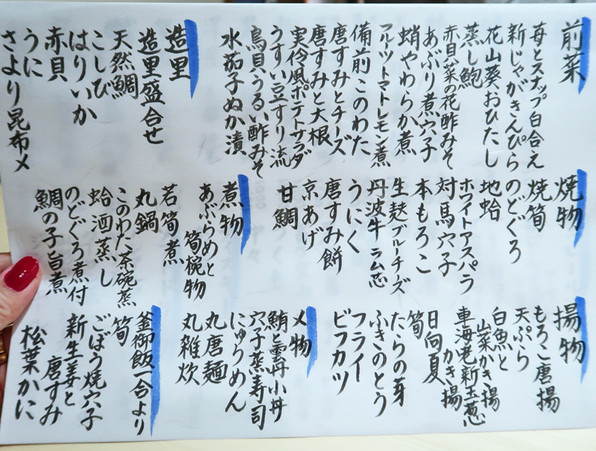 前菜
苺とスナップ白合え
新じゃがきんぴら
花山葵おひたし
蒸し鮑
赤貝菜の花酢みそ
あぶり煮穴子
蛸やわらか煮
フルーツトマトレモン煮
備前このわた
唐すみとチーズ
唐すみと大根
実伶風ポテトサラダ
うすい豆すり流し
鳥貝うるい酢みそ
水茄子ぬか漬
造里
造里盛合せ
天然鯛
こしび
はりいか
赤貝
うに
さより昆布〆
焼物
のどぐろ
焼筍
地蛤
ホワイトアスパラ
対馬穴子
本もろこ
生麩ブルーチーズ
丹波牛ラム芯
うにく
唐すみ餅
京あげ
甘鯛
煮物
あぶらめと
筍椀物
若筍煮
丸鍋
このわた茶碗蒸
蛤酒蒸し
のどぐろ煮付
鯛の子旨煮
揚物
もろこ唐揚
天ぷら
白魚と
山菜かき揚
車海老新玉葱
かき揚
日向夏
筍
たらの芽
ふきのとう
フライ
ビフカツ
〆物
鮪と雲丹小丼
穴子蒸寿司
にゅうめん
丸唐麺
丸雑炊
釜御飯一合より
筍
ごぼう焼穴子
新生姜と
唐すみ
松葉かに